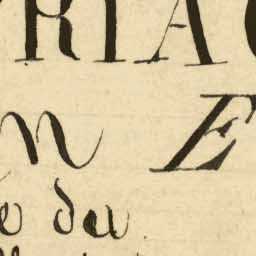 RIA
n E
e du